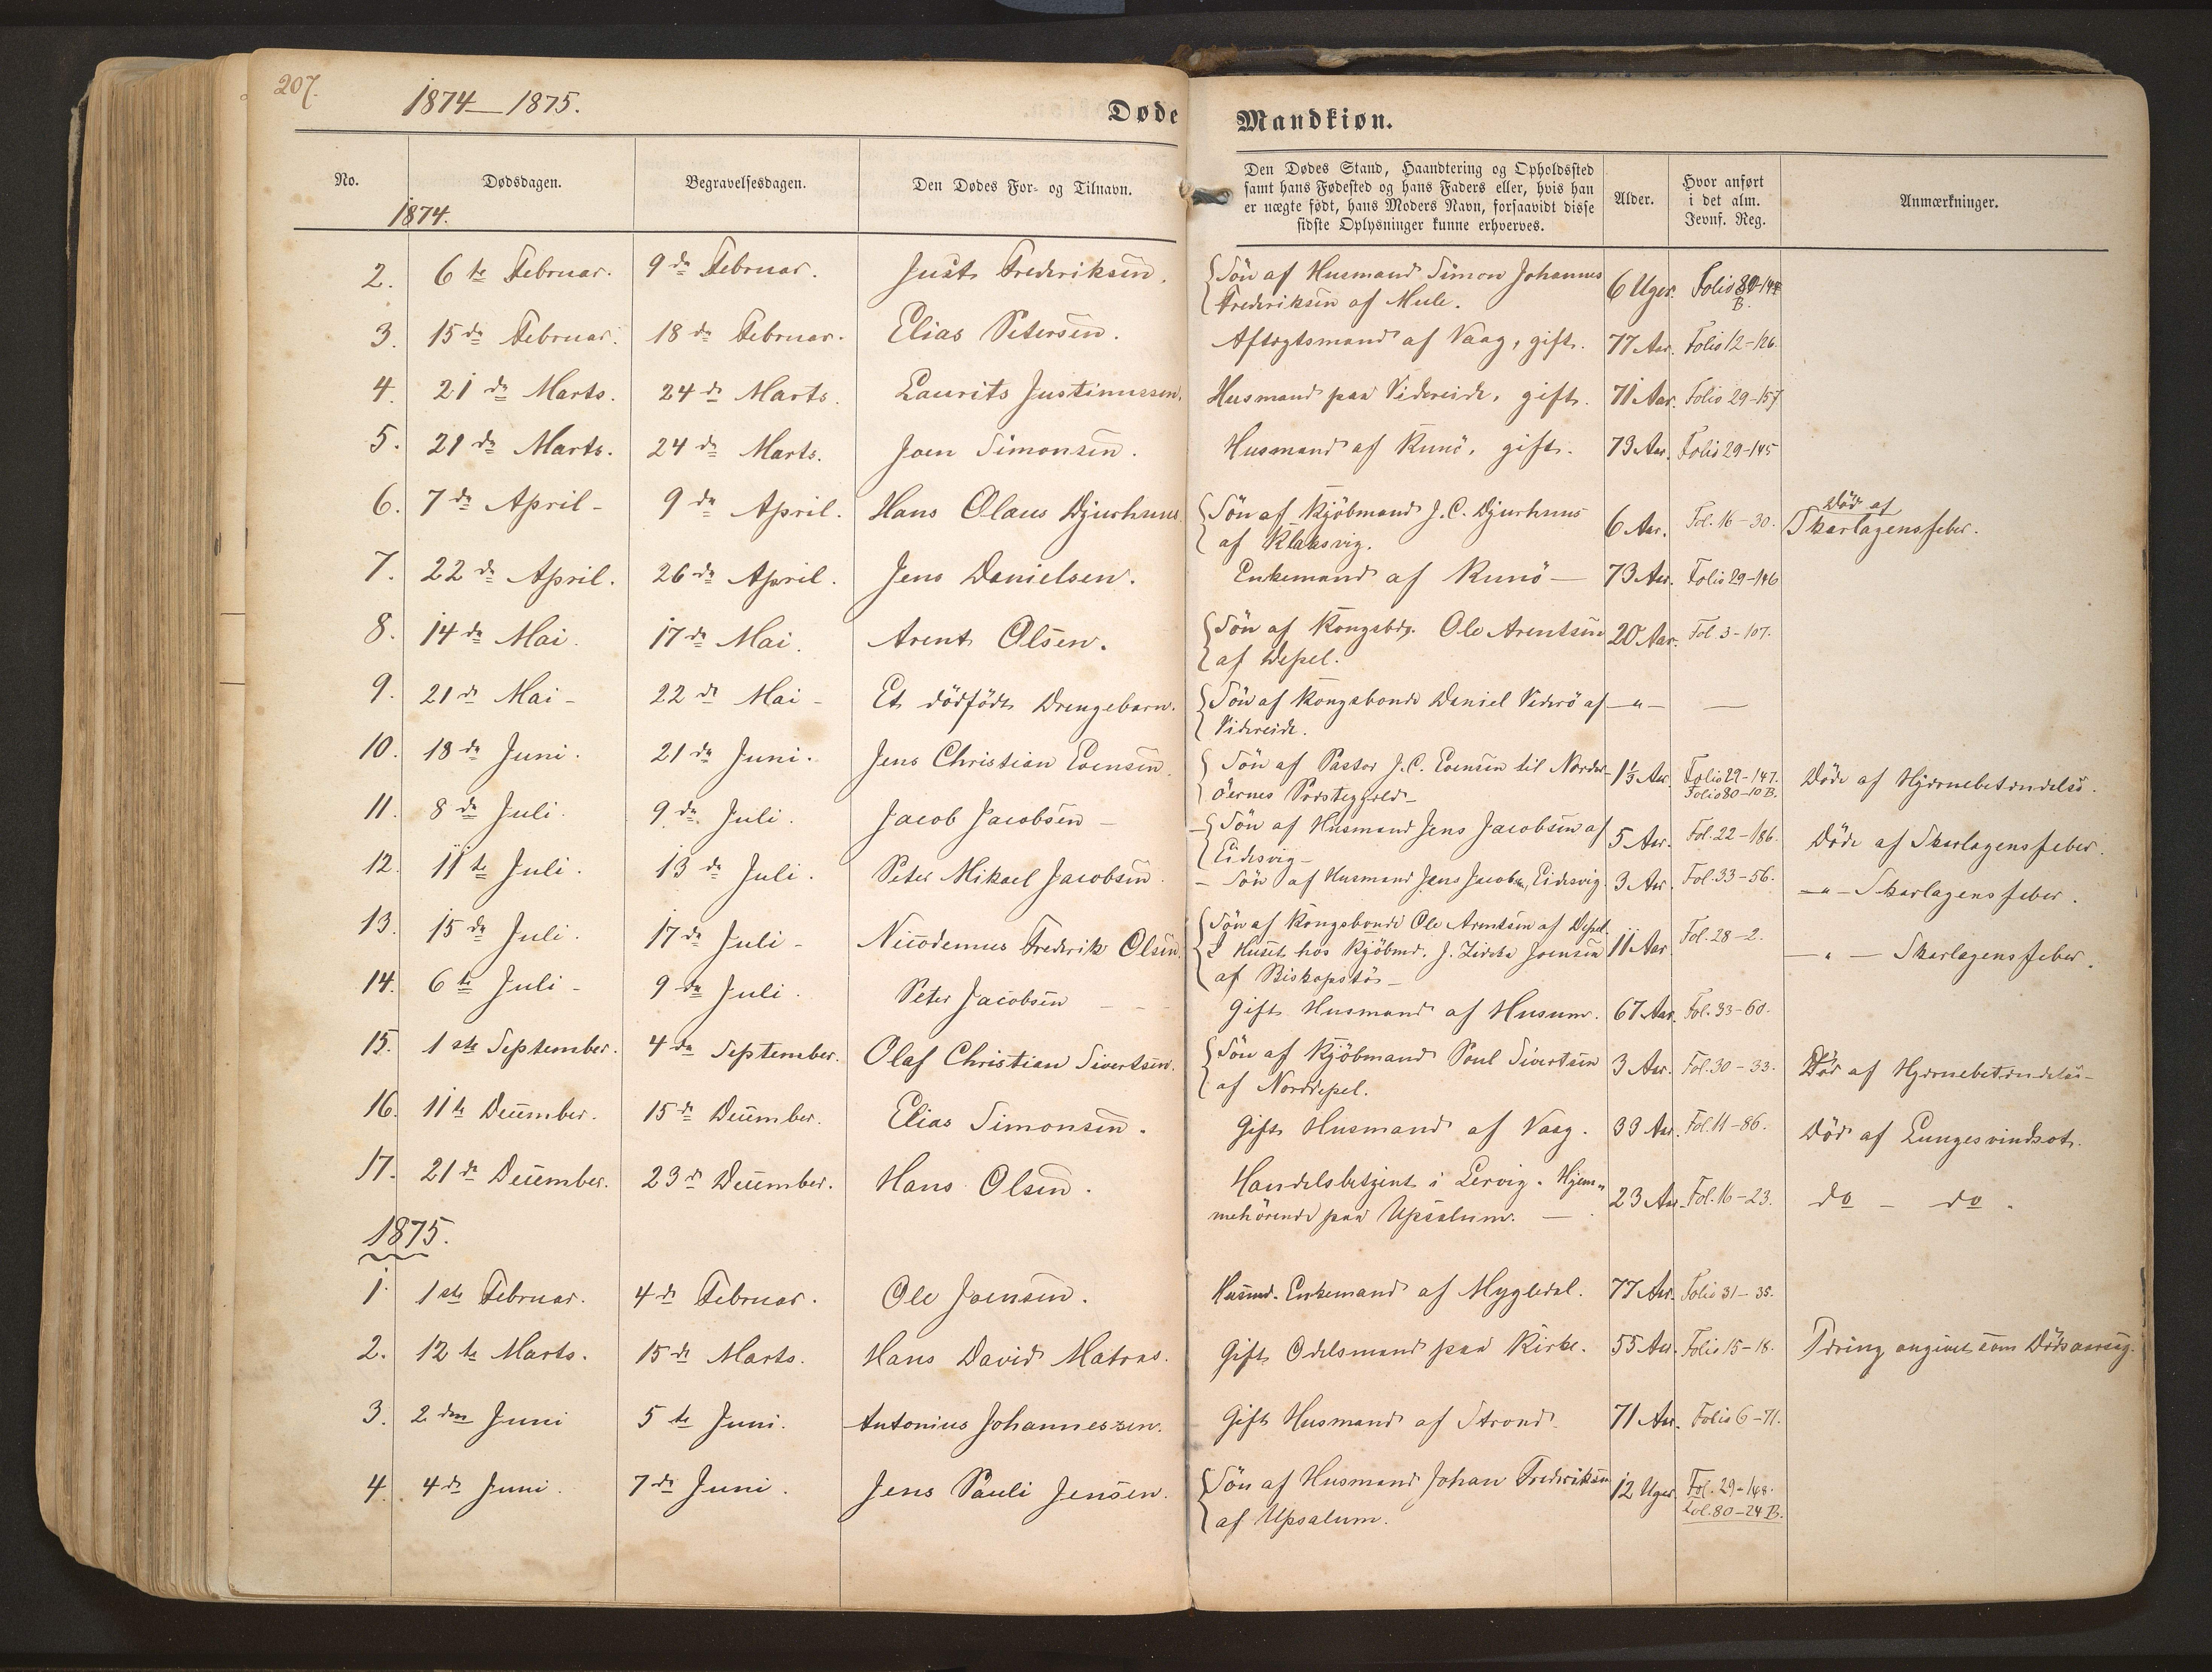 207.
1874–1875.
Døde Mandkiøn.
No. Dødsdagen. Begravelsesdagen. Den Dødes For- og Tilnavn. Den Dødes Stand, Haandtering og Opholdssted
samt hans Fødested og hans Faders eller, hvis han
er uægte født, hans Moders Navn, forsaavidt disse
sidste Oplysninger kunne erhverves. Alder. Hvor anført
i det alm.
Jevnf. Reg. Anmærkninger.
1874.
2. 6te Februar. 9de Februar. Just Frederiksen. Søn af Husmand Simon Johannes 6 Uger. Folio 80-144
Frederiksen af Mule. B.
3. 15de Februar. 18de Februar. Elias Petersen. Aftægtsmand af Vaag, gift. 77 Aar. Folio 12-126.
4. 21de Marts. 24de Marts. Laurits Justinussen. Husmand paa Videreide, gift. 71 Aar. Folio 29-157
5. 21de Marts. 24de Marts. Joen Simonsen. Husmand af Kunö, gift. 73 Aar. Folio 29-145
6. 7de April - 9de April. Hans Olaus Djurhuus Søn af Kjöbmand J. C. Djurhuus 6 Aar. Fol. 16-30. Död af
af Klaksvig. Skarlagensfeber.
7. 22de April. 26de April. Jens Danielsen. Enkemand af Kunö — 73 Aar. Folio 29-146
8. 14de Mai. 17de Mai. Arent Olsen. Søn af Kongsbdg. Ole Arentsen 20 Aar. Fol. 3-107.
af Depel.
9. 21de Mai - 22de Mai - Et dödfödt Drengebarn. Søn af Kongsbonde Daniel Viderö af —"— —
Videreide.
10. 18de Juni. 21de Juni. Jens Christian Evensen. Søn af Pastor J. C. Evensen til Norder- 1⅓ Aar. Folio 29-147.
öernes Præstegjeld - Folio 80-10 B. Döde af Hjernebetændelse.
11. 8de Juli. 9de Juli. Jacob Jacobsen — Søn af Husmand Jens Jacobsen af 5 Aar. Fol. 22-186. Döde af Skarlagensfeber.
Eidesvig -
12. 11te Juli. 13de Juli. Peter Mikael Jacobsen. - Søn af Husmand Jens Jacobsen, Eidesvig. 3 Aar. Fol. 33-56. —"— Skarlagensfeber.
13. 15de Juli. 17de Juli - Nicodemus Frederik Olsen. Søn af Kongsbonde Ole Arentsen af Depel. 11 Aar. Fol. 28-2. —"— Skarlagensfeber.
I Huset hos Kjöbmd. J. Zidcka Joensen
af Biskopstö -
14. 6te Juli - 9de Juli. Peter Jacobsen — Gift Husmand af Husum. 67 Aar. Fol. 33-60.
15. 1ste September. 4de September. Olaf Christian Sivertsen. Søn af Kjöbmand Poul Sivertsen 3 Aar. Fol. 30-33. Död af Hjernebetændelse -
af Norddepel.
16. 11te December. 15de December. Elias Simonsen. Gift Husmand af Vaag. 33 Aar. Fol. 11-86. Död af Lungesvindsot.
17. 21de December. 23de December. Hans Olsen. Handelsbetjent i Lervig. Hjem- 23 Aar. Fol. 16-23. do - do.
mehörende paa Upsalum. —
1875.
1. 1ste Februar. 4de Februar. Ole Joensen. Husmd. Enkemand af Mygledal. 77 Aar. Folio 31-35.
2. 12te Marts. 15de Marts. Hans David Matras. Gift Odelsmand paa Kirke. 55 Aar. Folio 15-18. Tæring angivet som Dödsaarsag.
3. 2den Juni 5te Juni. Antonius Johannessen. Gift Husmand af Strond. 71 Aar. Folio 6-71.
4. 4de Juni. 7de Juni. Jens Pauli Jensen. Søn af Husmand Johan Frederiksen 12 Uger. Fol. 29-148.
af Upsalum. Fol. 80-24 B.